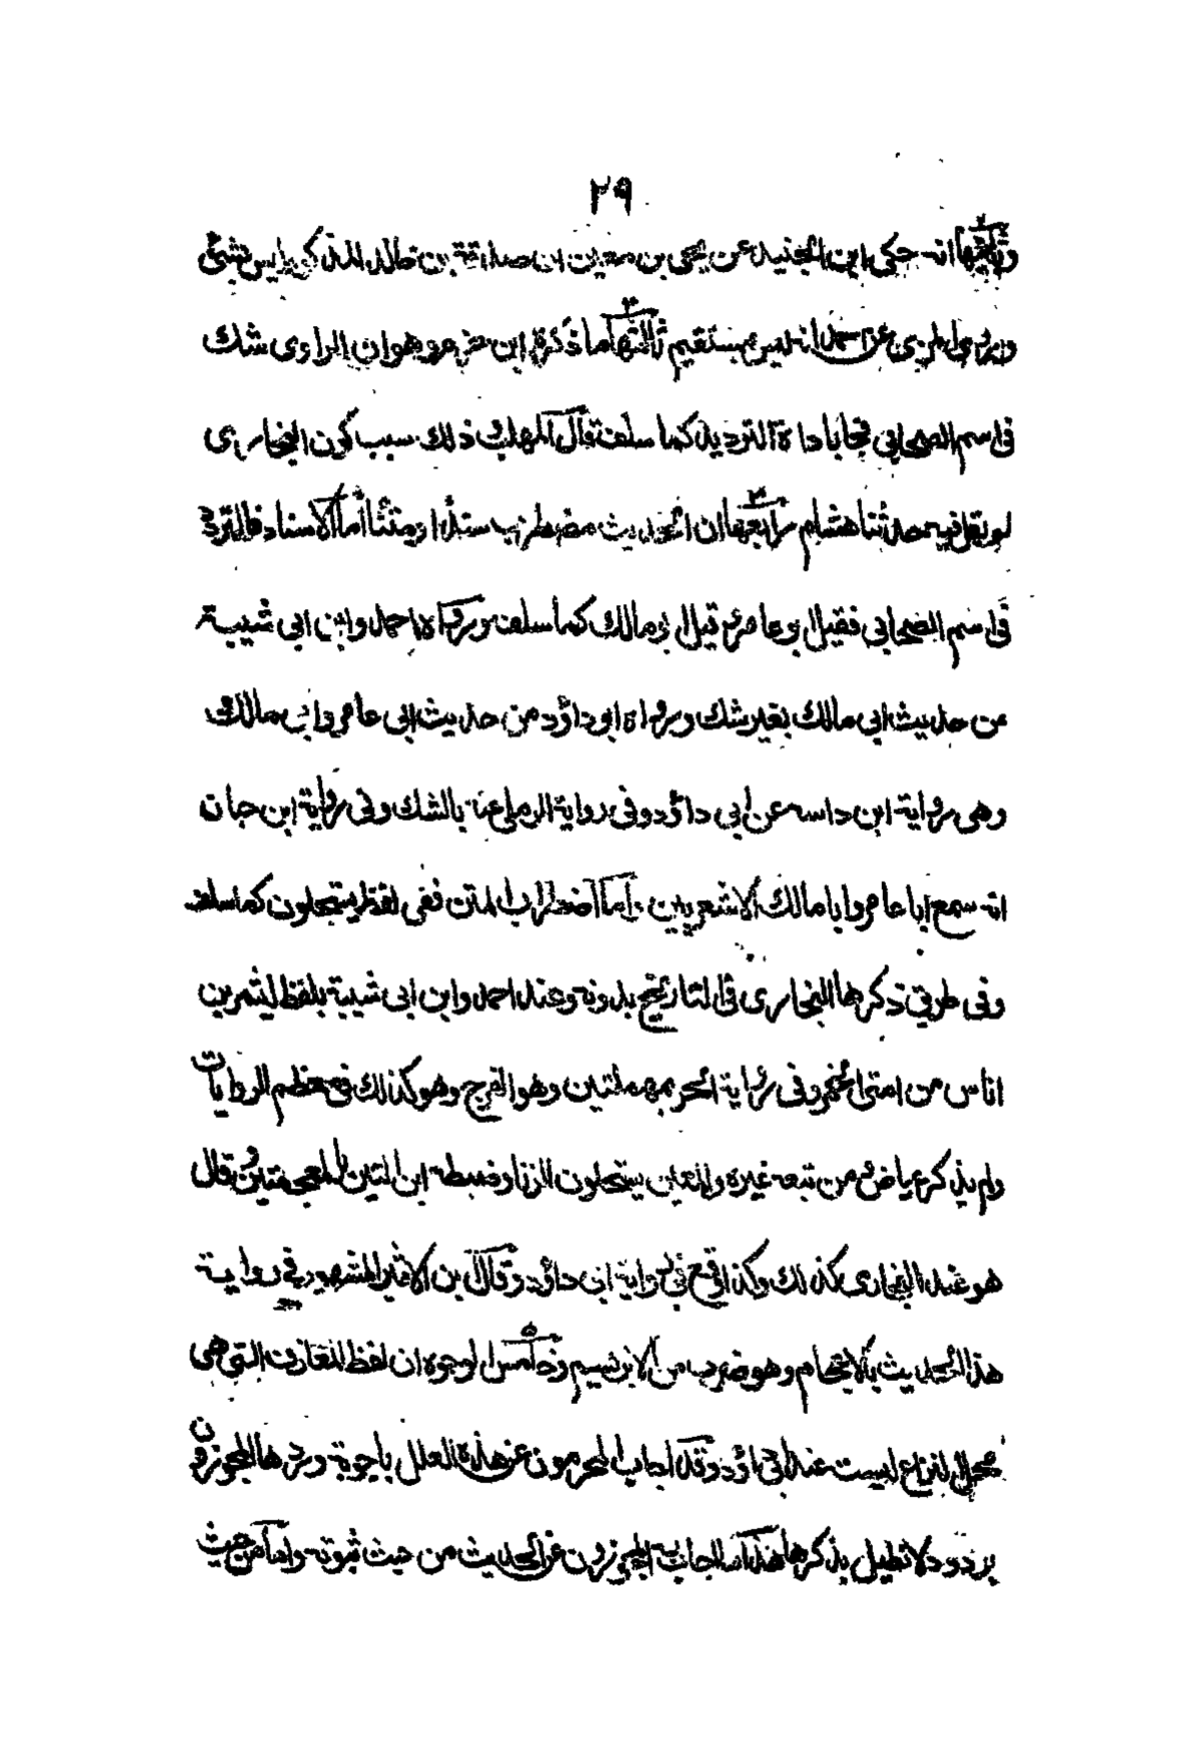 ٢٩
وثانيها انه حكى ابن الجنيد عن يحيى بن معين ان صدقة بن خالد المذكور ليس بشئ
وروى المزى عن احمد انه ليس بمستقيم ثالثها ما ذكره ابن حزم وهو ان الراوى شك
فى اسم الصحابي فجاء باداة الترديد كما سلف قال المهلب ذلك سبب كون البخارى
لم يقل فيه حدثنا هشام رابعها ان الحديث مضطرب سندا ومتنا أما الاسناد فالتردد
فى اسم الصحابي فقيل ابو عامر قيل ابو مالك كما سلف ورواه احمد وابن ابى شيبة
من حديث ابى مالك بغير شك ورواه ابو داؤد من حديث ابى عامر وابى مالك
وهى رواية ابن داسه عن ابى داؤد وفى رواية الرملى عنه بالشك وفى رواية ابن حبان
انه سمع ابا عامر وابا مالك الاشعريين واما اضطراب المتن ففى لفظ يستحلون كما سلف
وفى طرق ذكرها البخارى فى التاريخ بدونه وعند احمد وابن ابى شيبة بلفظ ليشربن
اناس من امتى الخمر وفى رواية الحر بمهملتين وهو الفرج وهو كذلك فى معظم الروايات
ولم يذكر عياض من تبعه غيره والمعنى يستحلون الزنا وضبطه ابن التين بالمعجمتين وقال
هو عند البخارى كذلك وكذا وقع فى رواية ابى داؤد وقال ابن الاثير المشهور فى رواية
هذا الحديث بالاعجام وهو ضرب من الابريسيم وخامس الوجوه ان لفظ المعازف التى هى
محل النزاع ليست عند ابى داؤد وقد اجاب المحرمون عن هذه العلل باجوبة وردها المجوزون
بردود لا نطيل بذكرها هذا ما اجاب به المجوزون عن الحديث من حيث ثبوته واما من حيث